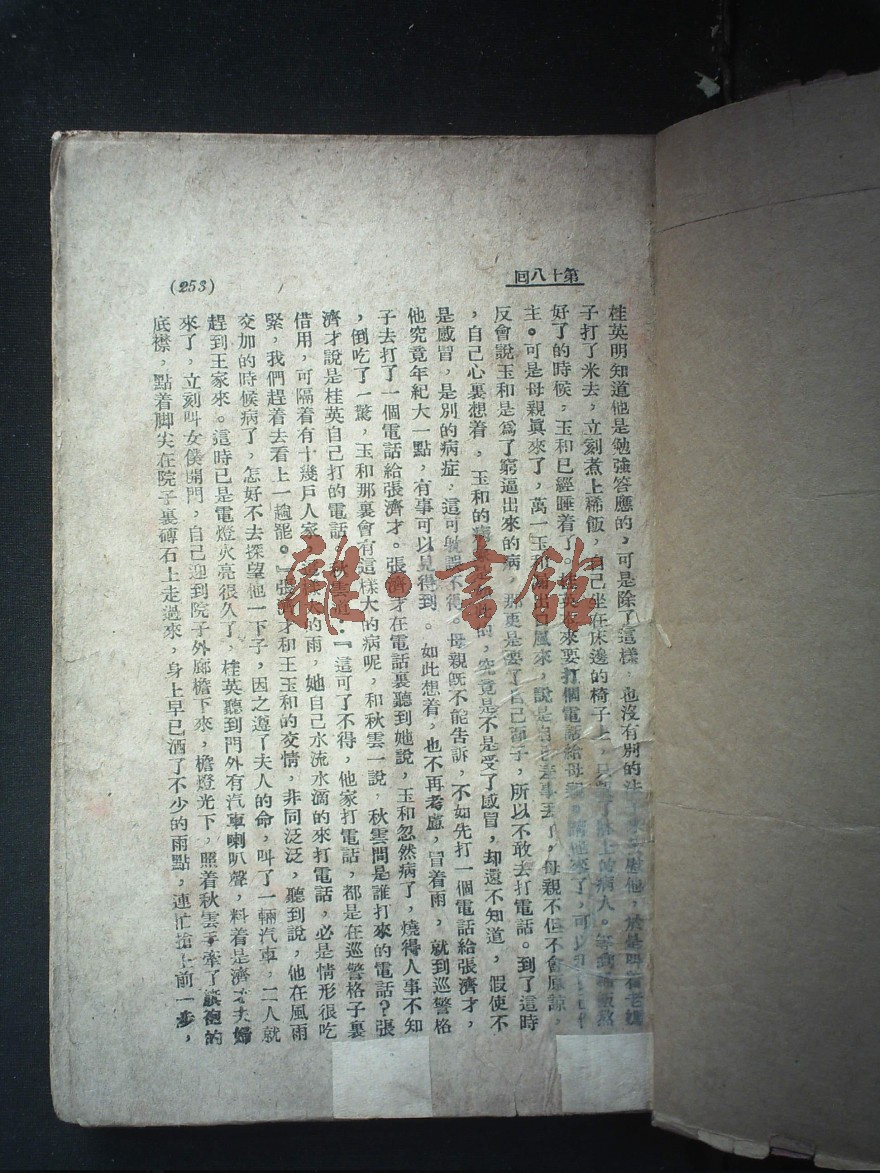 第十八回
(253)
桂英明知道他是勉強答應的，可是除了這樣，也沒有別的法 慰他，於是叫着老媽
子打了米去，立刻煮上稀飯，自己坐在床邊的椅子上，只 床上的病人。等到稀飯熬
好了的時候，玉和已經睡着了。桂英 來要打個電話給母親。 他來了，可以
主。可是母親眞來了，萬一玉和 出口風來，說是 差事丟了，母親不但不會原諒，
反會說玉和是爲了窮逼出來的病，那更是要了自己 子，所以不敢去打電話。到了這時
，自己心裏想着，玉和的病 是 的，究竟是不是受了感冒，却還不知道，假使不
是感冒，是別的病症，這可就誤不得。母親旣不能告訴，不如先打一個電話給張濟才，
他究竟年紀大一點，有事可以見得到。如此想着，也不再考慮，冒着雨，就到巡警格
子去打了一個電話給張濟才。張濟才在電話裏聽到她說，玉和忽然病了，燒得人事不知
，倒吃了一驚，玉和那裏會有這樣大的病呢，和秋雲一說，秋雲問是誰打來的電話？張
濟才說是桂英自己打的電話，秋雲道：『這可了不得，他家打電話，都是在巡警格子裏
借用，可隔着有十幾戶人家， 大的雨，她自己水流水滴的來打電話，必是情形很吃
緊，我們趕着去看上一趟罷。』張濟才和王玉和的交情，非同泛泛，聽到說，他在風雨
交加的時候病了，怎好不去探望他一下子，因之遵了夫人的命，叫了一輛汽車，二人就
趕到王家來。這時已是電燈火亮很久了，桂英聽到門外有汽車喇叭聲，料着是濟才夫婦
來了，立刻叫女僕開門，自己迎到院子外廊檐下來，檐燈光下，照着秋雲手牽了旗袍的
底襟，點着脚尖在院子裏磚石上走過來，身上早已洒了不少的雨點，連忙搶上前一步，
雜·書館